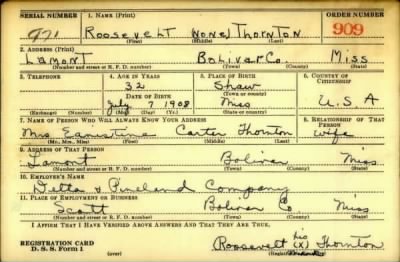 SERIAL NUMBER 1. NAME (Print) ORDER NUMBER
921 ROOSEVELT (NONE) THORNTON 909
(First) (Middle) (Last)
2. ADDRESS (Print)
LAMONT BOLIVAR CO. MISS
(Number and street or R. F. D. number) (Town) (County) (State)
3. TELEPHONE 4. AGE IN YEARS 5. PLACE OF BIRTH 6. COUNTRY OF CITIZENSHIP
32 Shaw
DATE OF BIRTH (Town or county)
July 7 1908 Miss U.S.A
(Exchange) (Number) (Mo.) (Day) (Yr.) (State or country)
7. NAME OF PERSON WHO WILL ALWAYS KNOW YOUR ADDRESS 8. RELATIONSHIP OF THAT PERSON
Mrs Earnestine Carter Thornton wife
(Mr., Mrs., Miss) (First) (Middle) (Last)
9. ADDRESS OF THAT PERSON
Lamont Bolivar Miss
(Number and street or R. F. D. number) (Town) (County) (State)
10. EMPLOYER'S NAME
Delta & Pineland Company
11. PLACE OF EMPLOYMENT OR BUSINESS
Scott Bolivar Co Miss
(Number and street or R. F. D. number) (Town) (County) (State)
I AFFIRM THAT I HAVE VERIFIED ABOVE ANSWERS AND THAT THEY ARE TRUE.
REGISTRATION CARD his
D. S. S. Form 1 Roosevelt (X) Thornton
(over) mark